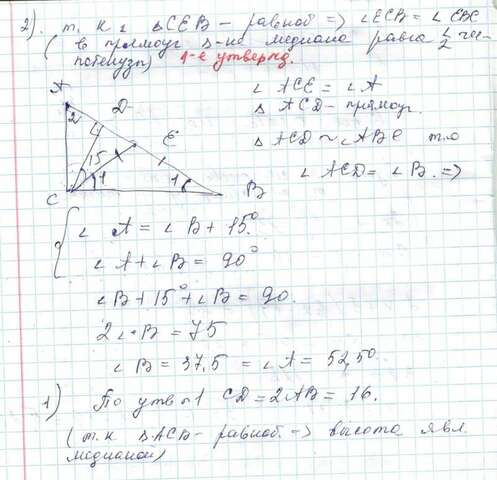 2). т. к. △CEB – равноб => ∠ECB = ∠EBC
(в прямоуг △-ке медиана равна 1/2 ги-
потенузы) 1-е утвержд.
∠ACE = ∠A
△ACD – прямоуг.
△ACD ~ ABC т.о
∠ACD = ∠B. =>
A
2
D
E
15
1
1
C
B
∠A = ∠B + 15°
∠A + ∠B = 90°
∠B + 15° + ∠B = 90.
2∠B = 75
∠B = 37,5 = ∠A = 52,5°
1) По утв 1 CD = 2AB = 16.
(т.к △ACB – равноб. => высота явл.
медианой)